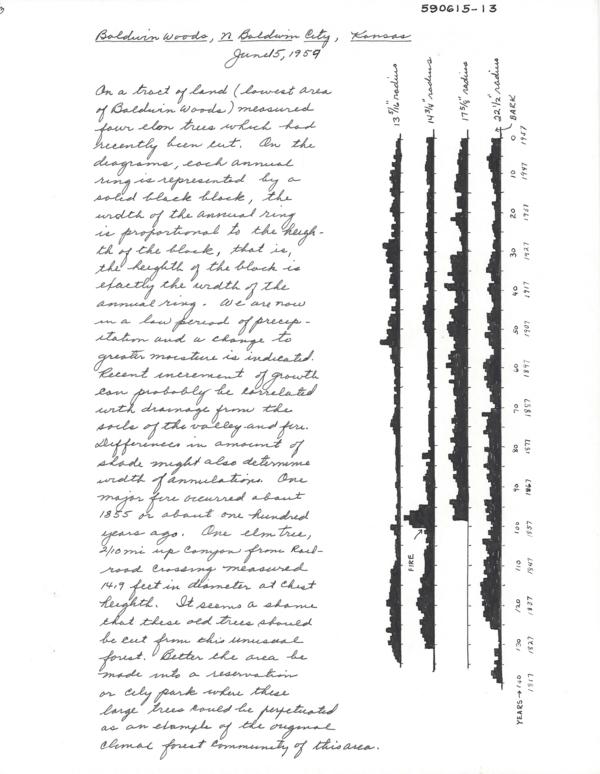 590615-13
Baldwin Woods, N Baldwin City, Kansas
June 15, 1959
On a tract of land (lowest area
of Baldwin Woods) measured
four elm trees which had
recently been cut. On the
diagrams, each annual
ring is represented by a
solid black block, the
width of the annual ring
is proportional to the heigh-
th of the block, that is,
the heighth of the block is
exactly the width of the
annual ring. We are now
in a low period of precip-
itation and a change to
greater moisture is indicated.
Recent increment of growth
can probably be correlated
with drainage from the
soils of the valley and fire.
Differences in amount of
shade might also determine
width of annulations. One
major fire occurred about
1855 or about one hundred
years ago. One elm tree,
2/10 mi up Canyon from Rail-
road Crossing measured
14.9 feet in diameter at Chest
heighth. It seems a shame
that these old trees should
be cut from this unusual
forest. Better the area be
made into a reservation
or city park where these
large trees could be perpetuated
as an example of the original
climax forest community of this area.
13 5/16" radius
14 3/4" radius
17 5/8" radius
22 1/2" radius
BARK
FIRE
0 10 20 30 40 50 60 70 80 90 100 110 120 130 YEARS → 140
1957 1947 1937 1927 1917 1907 1897 1887 1877 1867 1857 1847 1837 1827 1817